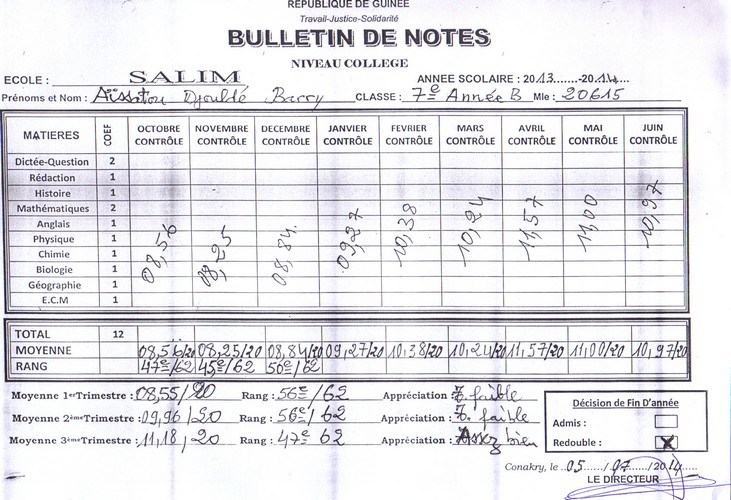 REPUBLIQUE DE GUINEE
Travail-Justice-Solidarité
BULLETIN DE NOTES
NIVEAU COLLEGE
ECOLE : SALIM ANNEE SCOLAIRE : 2013.......-2014...
Prénoms et Nom : Aïssatou Djouldé Barry CLASSE : 7e Année B Mle : 20615
MATIERES COEF OCTOBRE CONTRÔLE NOVEMBRE CONTRÔLE DECEMBRE CONTRÔLE JANVIER CONTRÔLE FEVRIER CONTRÔLE MARS CONTRÔLE AVRIL CONTRÔLE MAI CONTRÔLE JUIN CONTRÔLE
Dictée-Question 2
Rédaction 1
Histoire 1
Mathématiques 2
Anglais 1
Physique 1
Chimie 1
Biologie 1
Géographie 1
E.C.M 1
08,56 08,25 08,84 09,27 10,38 10,24 11,57 11,00 10,97
TOTAL 12
MOYENNE 08,56/20 08,25/20 08,84/20 09,27/20 10,38/20 10,24/20 11,57/20 11,00/20 10,97/20
RANG 47e/62 45e/62 50e/62
Moyenne 1erTrimestre : 08,55/20 Rang : 56e/62 Appréciation : T. faible
Moyenne 2èmeTrimestre : 09,96/20 Rang : 56e/62 Appréciation : T. faible
Moyenne 3èmeTrimestre : 11,18/20 Rang : 47e 62 Appréciation : Assez bien
Décision de Fin D'année
Admis :
Redouble : X
Conakry, le ..05....../07.../2014
LE DIRECTEUR